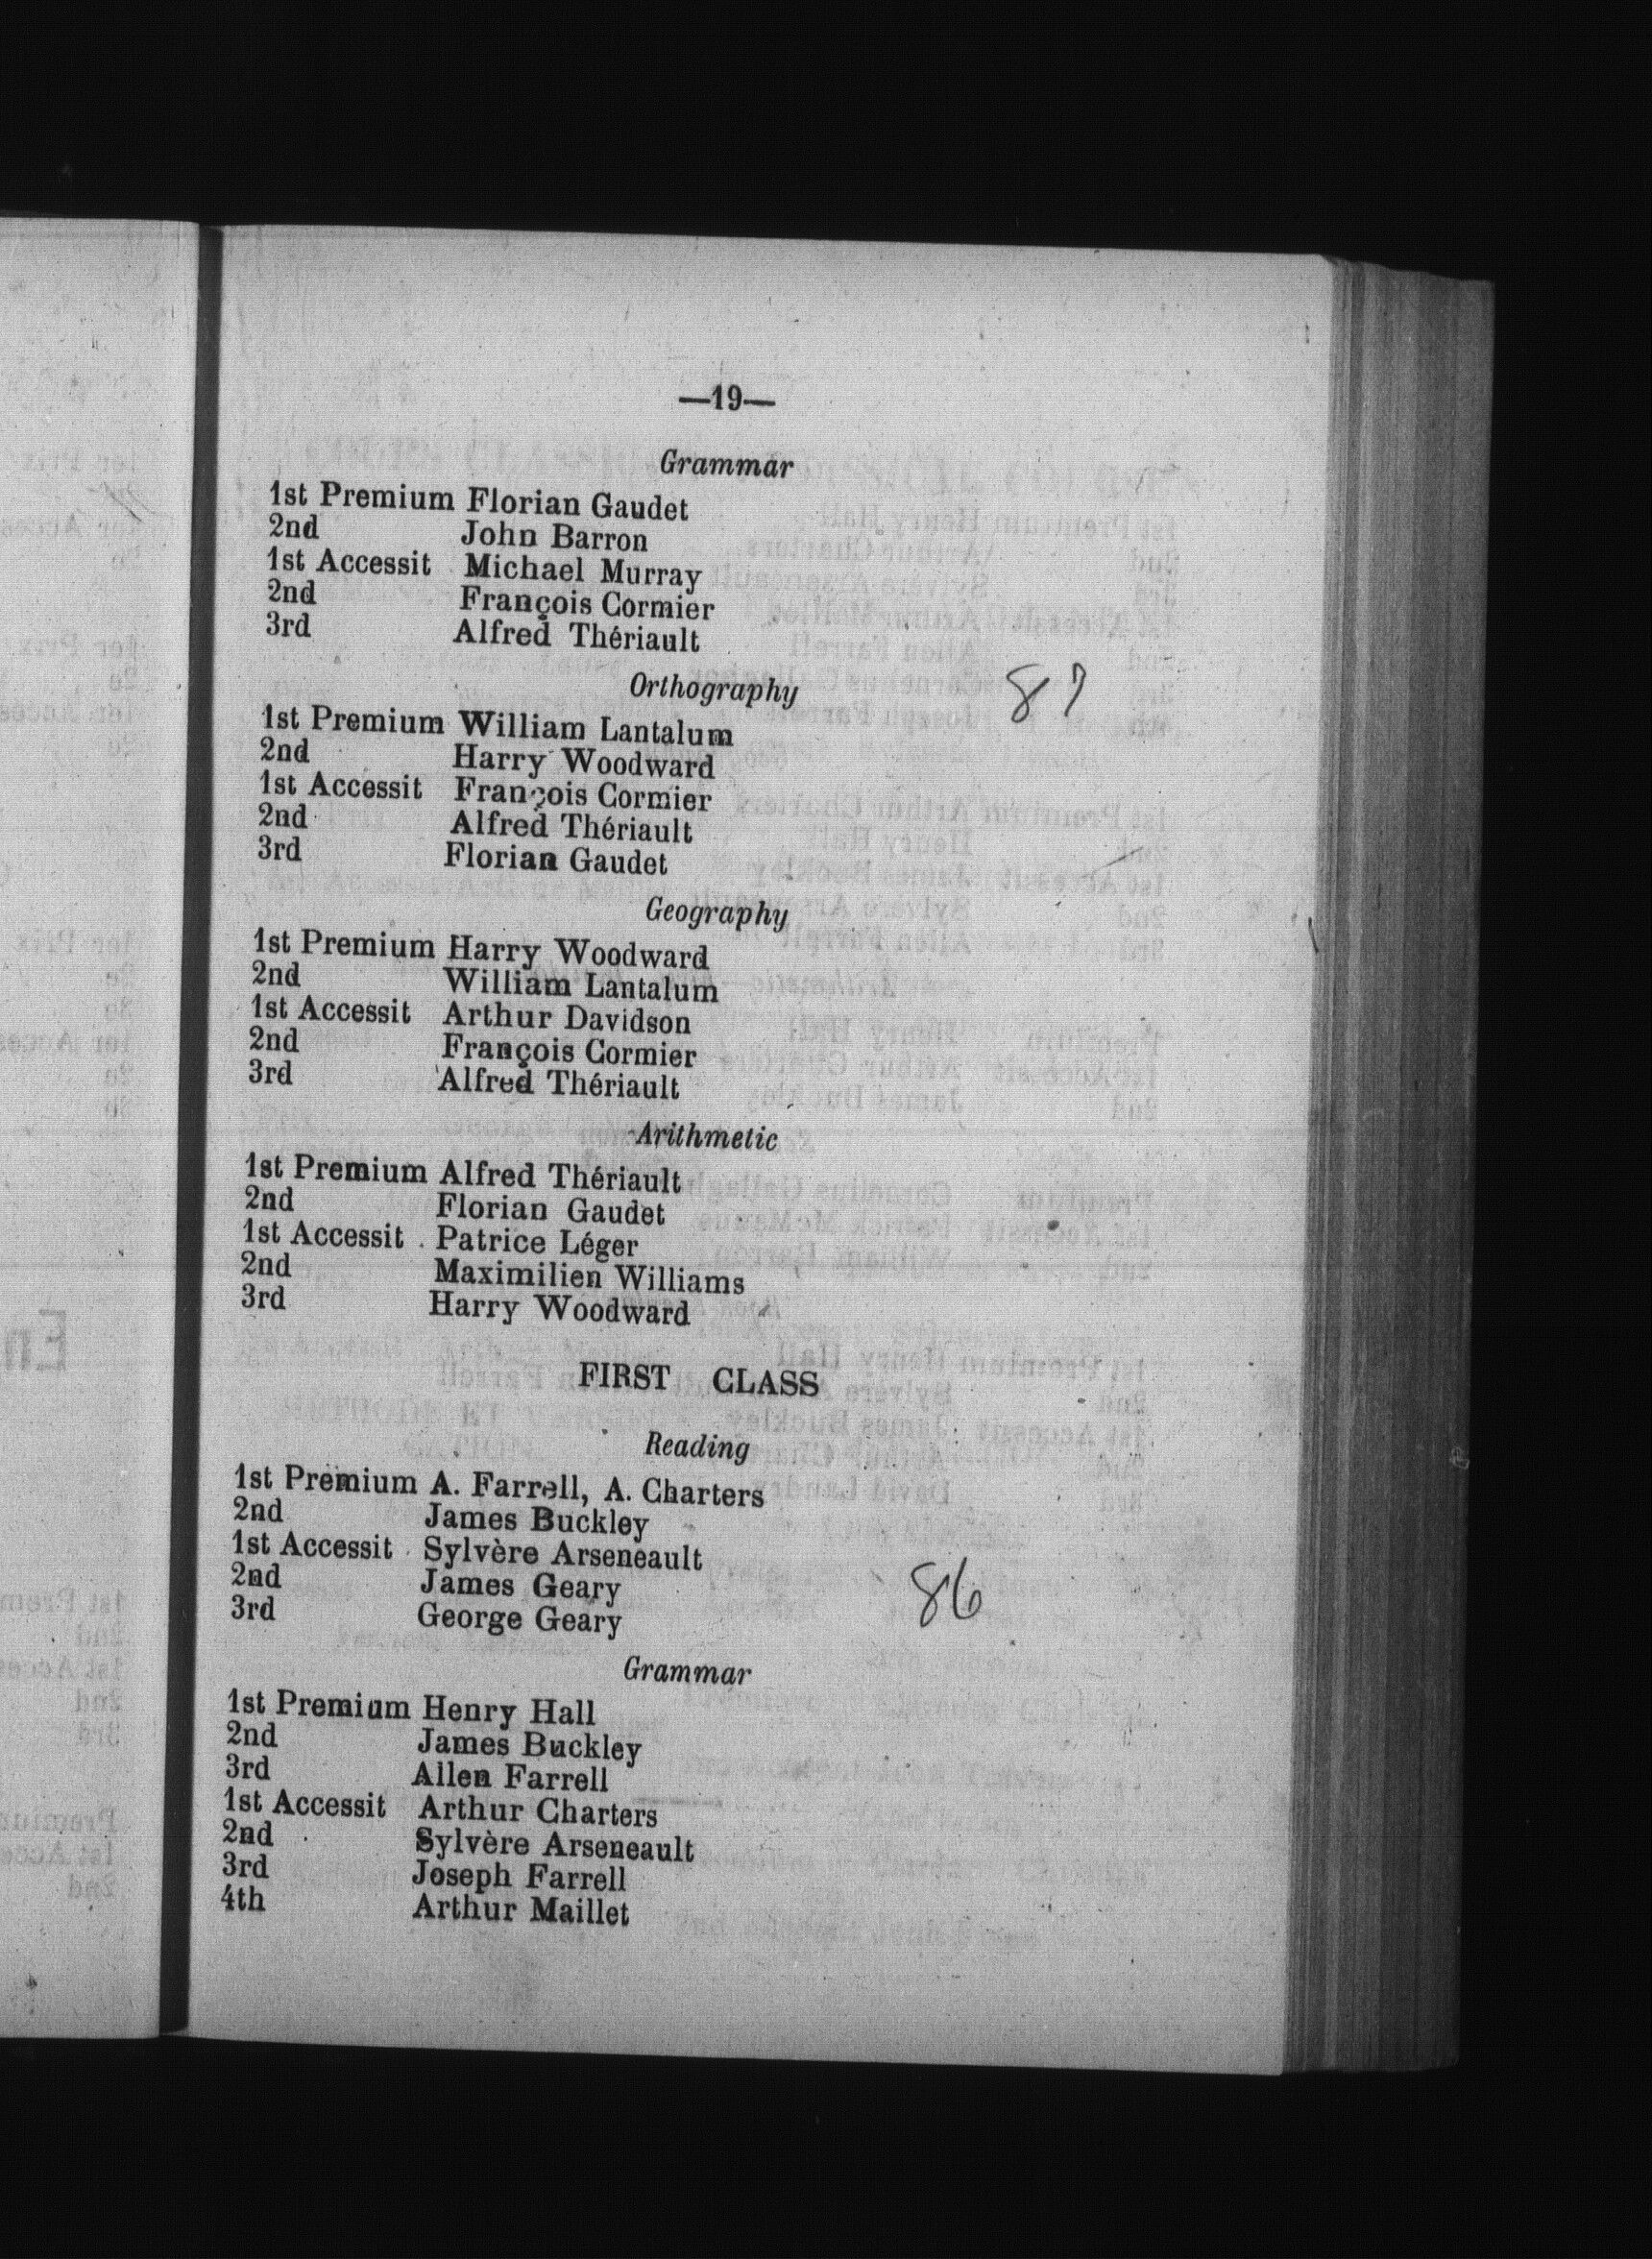 —19—
Grammar
1st Premium Florian Gaudet
2nd John Barron
1st Accessit Michael Murray
2nd François Cormier
3rd Alfred Thériault
Orthography
87
1st Premium William Lantalum
2nd Harry Woodward
1st Accessit François Cormier
2nd Alfred Thériault
3rd Florian Gaudet
Geography
1st Premium Harry Woodward
2nd William Lantalum
1st Accessit Arthur Davidson
2nd François Cormier
3rd Alfred Thériault
Arithmetic
1st Premium Alfred Thériault
2nd Florian Gaudet
1st Accessit Patrice Léger
2nd Maximilien Williams
3rd Harry Woodward
FIRST CLASS
Reading
1st Premium A. Farrell, A. Charters
2nd James Buckley
1st Accessit Sylvère Arseneault
2nd James Geary
86
3rd George Geary
Grammar
1st Premium Henry Hall
2nd James Buckley
3rd Allen Farrell
1st Accessit Arthur Charters
2nd Sylvère Arseneault
3rd Joseph Farrell
4th Arthur Maillet